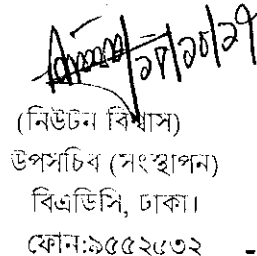 ২৮/১০/২১
(নিউটন বিশ্বাস)
উপসচিব (সংস্থাপন)
বিএডিসি, ঢাকা।
ফোন:৯৫৫২৫৩২